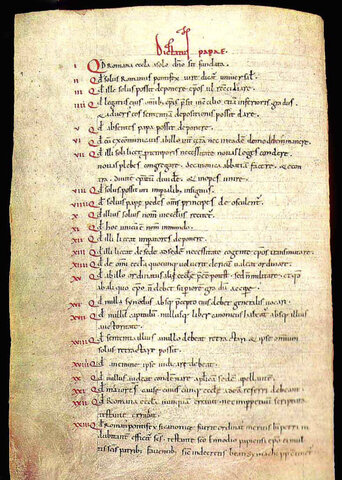 Dictatus papae.
I Qd Romana eccla a solo dno sit fundata.
II Qd solus Romanus pontifex iure dicat universal.
III Qd ille solus possit deponere epos ul reconciliare.
IIII Qd legatus eius omnib; epis presit in concilio etiam inferioris gradus
& adversus eos sententiam depositionis possit dare.
V Qd absentes papa possit deponere.
VI Qd cu excommunicatis ab illo int cetera nec in eade domo debem manere.
VII Qd illi soli licet p temporis necessitate novas leges condere,
novas plebes congregare, de canonica abbatiam facere & econ
tra, divite epatum dividere & inopes unire.
VIII Qd solus possit uti imperialib; insigniis.
VIIII Qd solius pape pedes oms principes deosculent.
X Qd illius solius nom in ecclis recitet.
XI Qd hoc unicu e nom in mundo.
XII Qd illi liceat imperatores deponere.
XIII Qd illi liceat de sede ad sede necessitate cogente epos transmutare.
XIIII Qd de omi eccla quocunq; voluerit clericu valeat ordinare.
XV Qd ab illo ordinatus alii eccle pee potest, sed n militare; et qd
ab aliquo epo n debet superiore gradu accipe.
XVI Qd nulla synodus absq; pcepto eius debet generalis vocari.
XVII Qd nullu capitulu nullusq; liber canonicus habeat absq; illius
auctoritate.
XVIII Qd sententia illius a nullo debeat retractari & ipse omnium
solus retractare possit.
XVIIII Qd a nemine ipse iudicari debeat.
XX Qd nullus audeat condemnare aplica sede apellante.
XXI Qd maiores cause cuiuscunq; eccle ad ea referri debeant.
XXII Qd Romana eccla nunqua erravit nec imppetuu scriptura
testante errabit.
XXIII Qd Romanus pontifex si canonice fuerit ordinatus meritis b petri in
dubitanter efficit scs, testante sco Ennodio papiensi epo ei mul
tis scis patrib; faventib;, sic in decretis beati Symachi pp contine